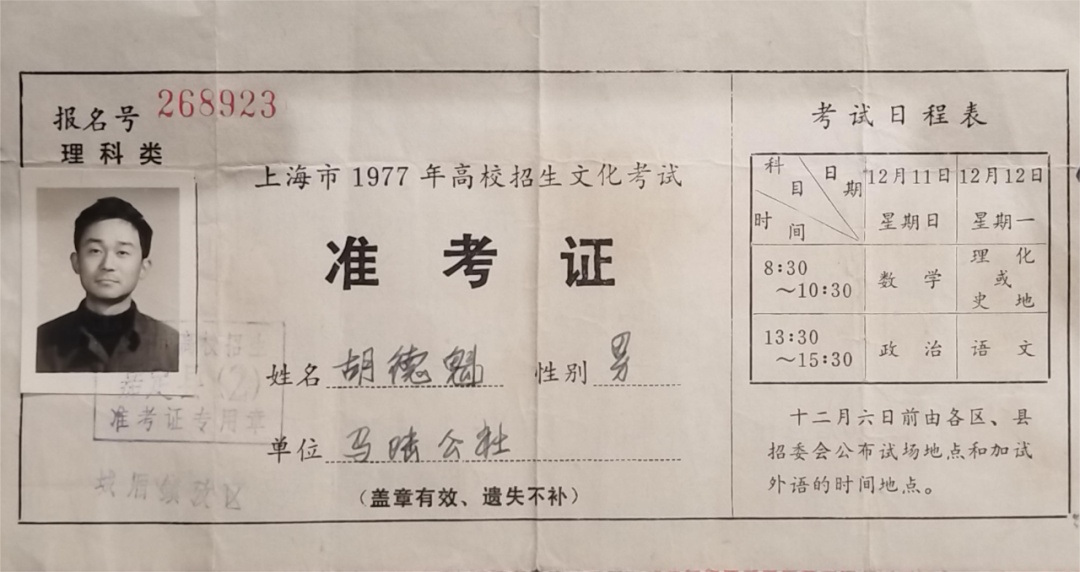 报名号 268923
理科类
上海市1977年高校招生文化考试
准考证
姓名 胡德魁 性别 男
单位 马陆公社
(盖章有效、遗失不补)
高校招生
嘉定县(2)
准考证专用章
考试日程表
科目 日期 时间 12月11日 星期日 12月12日 星期一
8:30～10:30 数学 理化或史地
13:30～15:30 政治 语文
十二月六日前由各区、县
招委会公布试场地点和加试
外语的时间地点。